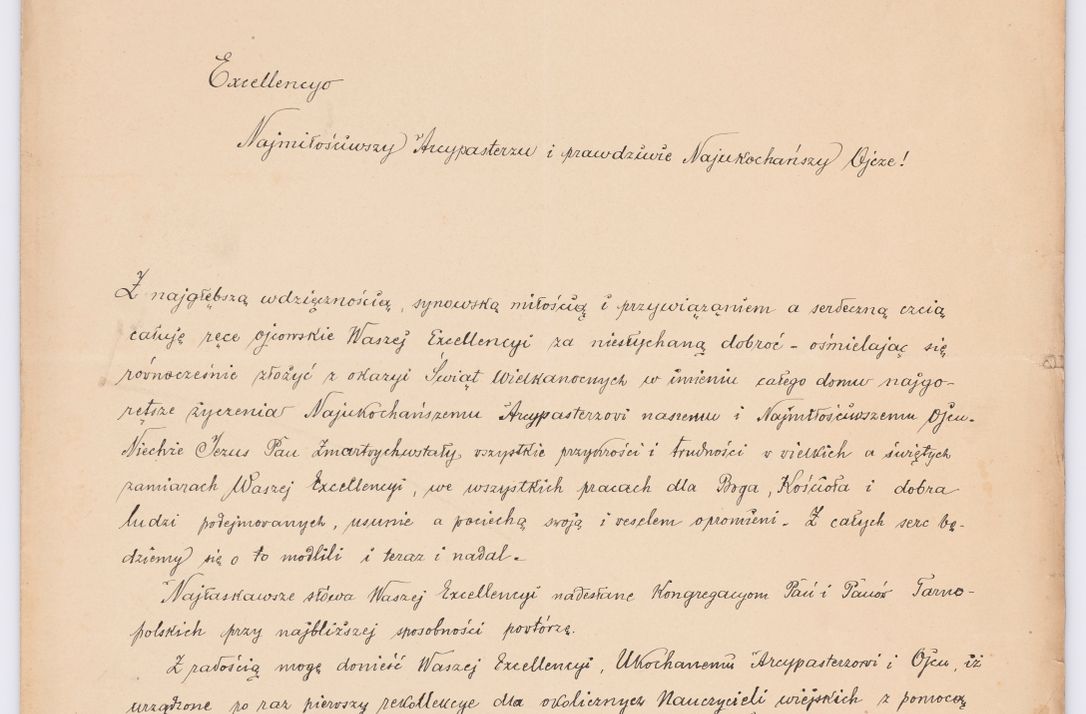 Excellencyo
Najmiłościwszy Arcypasterzu i prawdziwie Najukochańszy Ojcze!
Z najgłębszą wdzięcznością, synowską miłością i przywiązaniem a serdeczną czcią
całuję ręce ojcowskie Waszej Excellencyi za niesłychaną dobroć – ośmielając się
równocześnie złożyć z okazyi Świąt Wielkanocnych w imieniu całego domu najgo-
rętsze życzenia Najukochańszemu Arcypasterzowi naszemu i Najmiłościwszemu Ojcu.
Niechże Jezus Pan Zmartwychwstały wszystkie przykrości i trudności w wielkich a świętych
zamiarach Waszej Excellencyi, we wszystkich pracach dla Boga, Kościoła i dobra
ludzi podejmowanych, usunie a pociechą swoją i weselem opromieni. Z całych serc bę-
dziemy się o to modlili i teraz i nadal.
Najłaskawsze słowa Waszej Excellencyi nadesłane Kongregacyom Pań i Panów Tarno-
polskich przy najbliższej sposobności powtórzę.
Z radością mogę donieść Waszej Excellencyi, Ukochanemu Arcypasterzowi i Ojcu, iż
urządzone po raz pierwszy rekollekcye dla okolicznych Nauczycieli wiejskich z pomocą